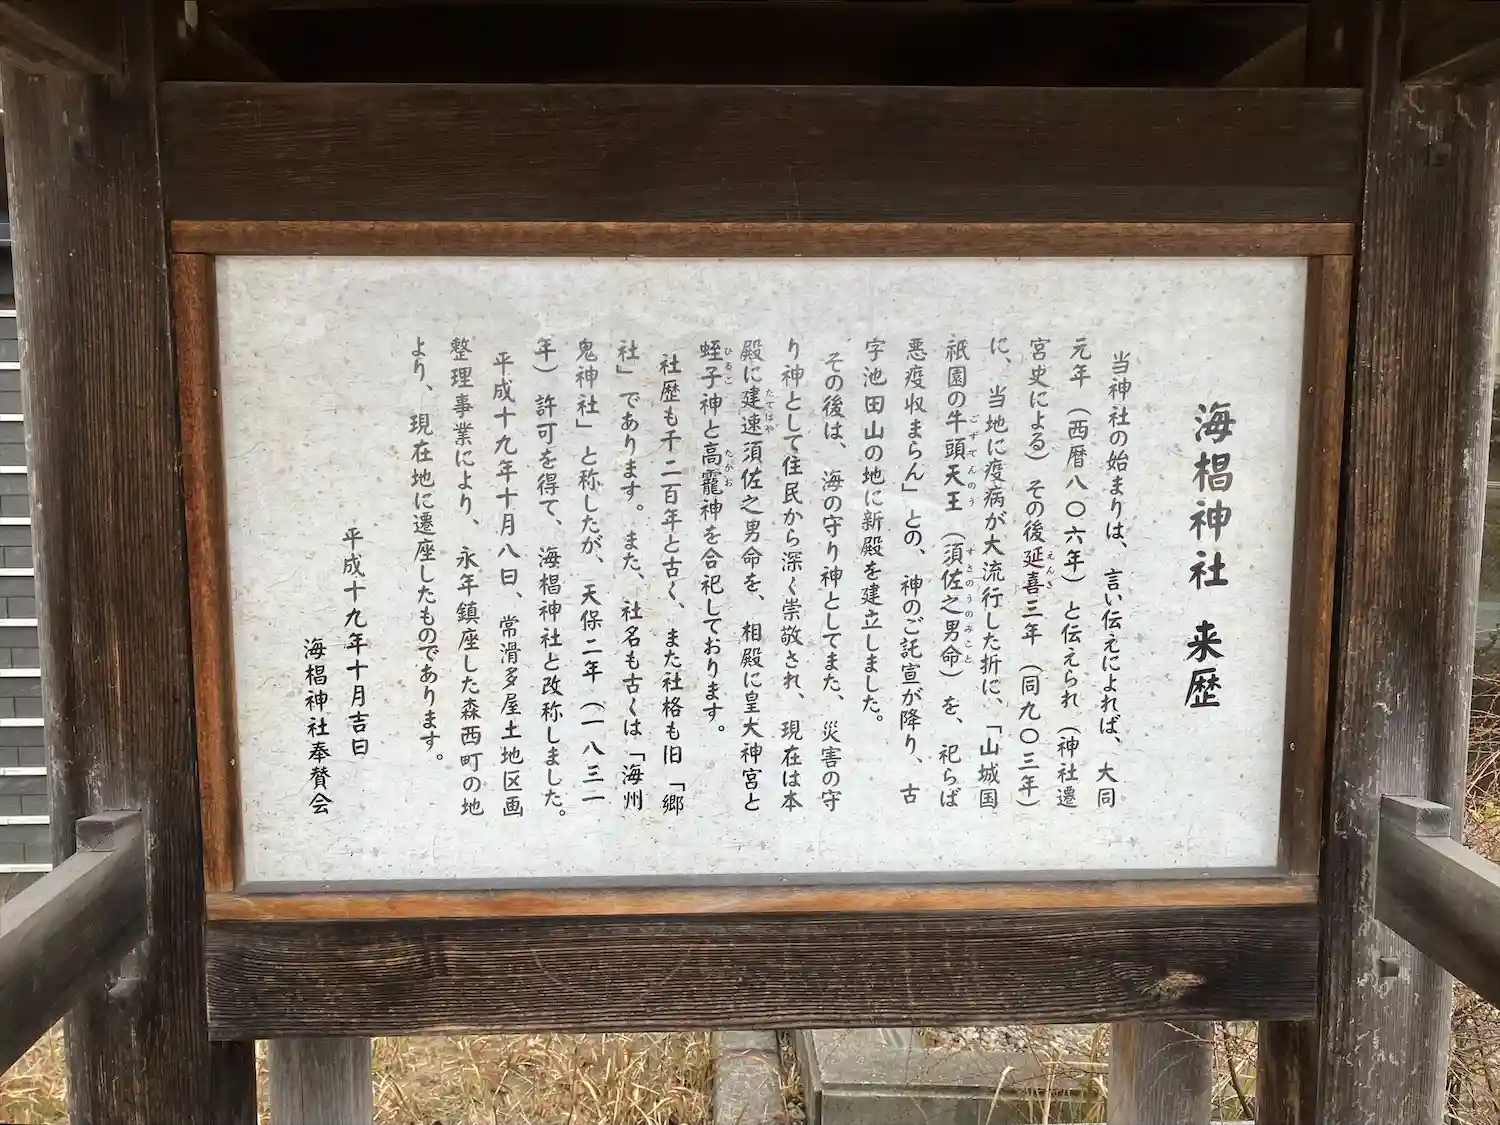 海椙神社 来歴
当神社の始まりは、言い伝えによれば、大同
元年（西暦八〇六年）と伝えられ（神社遷
宮史による）その後延喜三年（同九〇三年）
に、当地に疫病が大流行した折に、「山城国
祇園の牛頭天王（須佐之男命）を、祀らば
悪疫収まらん」との、神のご託宣が降り、古
字池田山の地に新殿を建立しました。
その後は、海の守り神としてまた、災害の守
り神として住民から深く崇敬され、現在は本
殿に建速須佐之男命を、相殿に皇大神宮と
蛭子神と高龗神を合祀しております。
社歴も千二百年と古く、また社格も旧「郷
社」であります。また、社名も古くは「海州
鬼神社」と称したが、天保二年（一八三一
年）許可を得て、海椙神社と改称しました。
平成十九年十月八日、常滑多屋土地区画
整理事業により、永年鎮座した森西町の地
より、現在地に遷座したものであります。
平成十九年十月吉日
海椙神社奉賛会
えんぎ
ごずてんのう
すさのうのみこと
たてはや
ひるこ
たかお